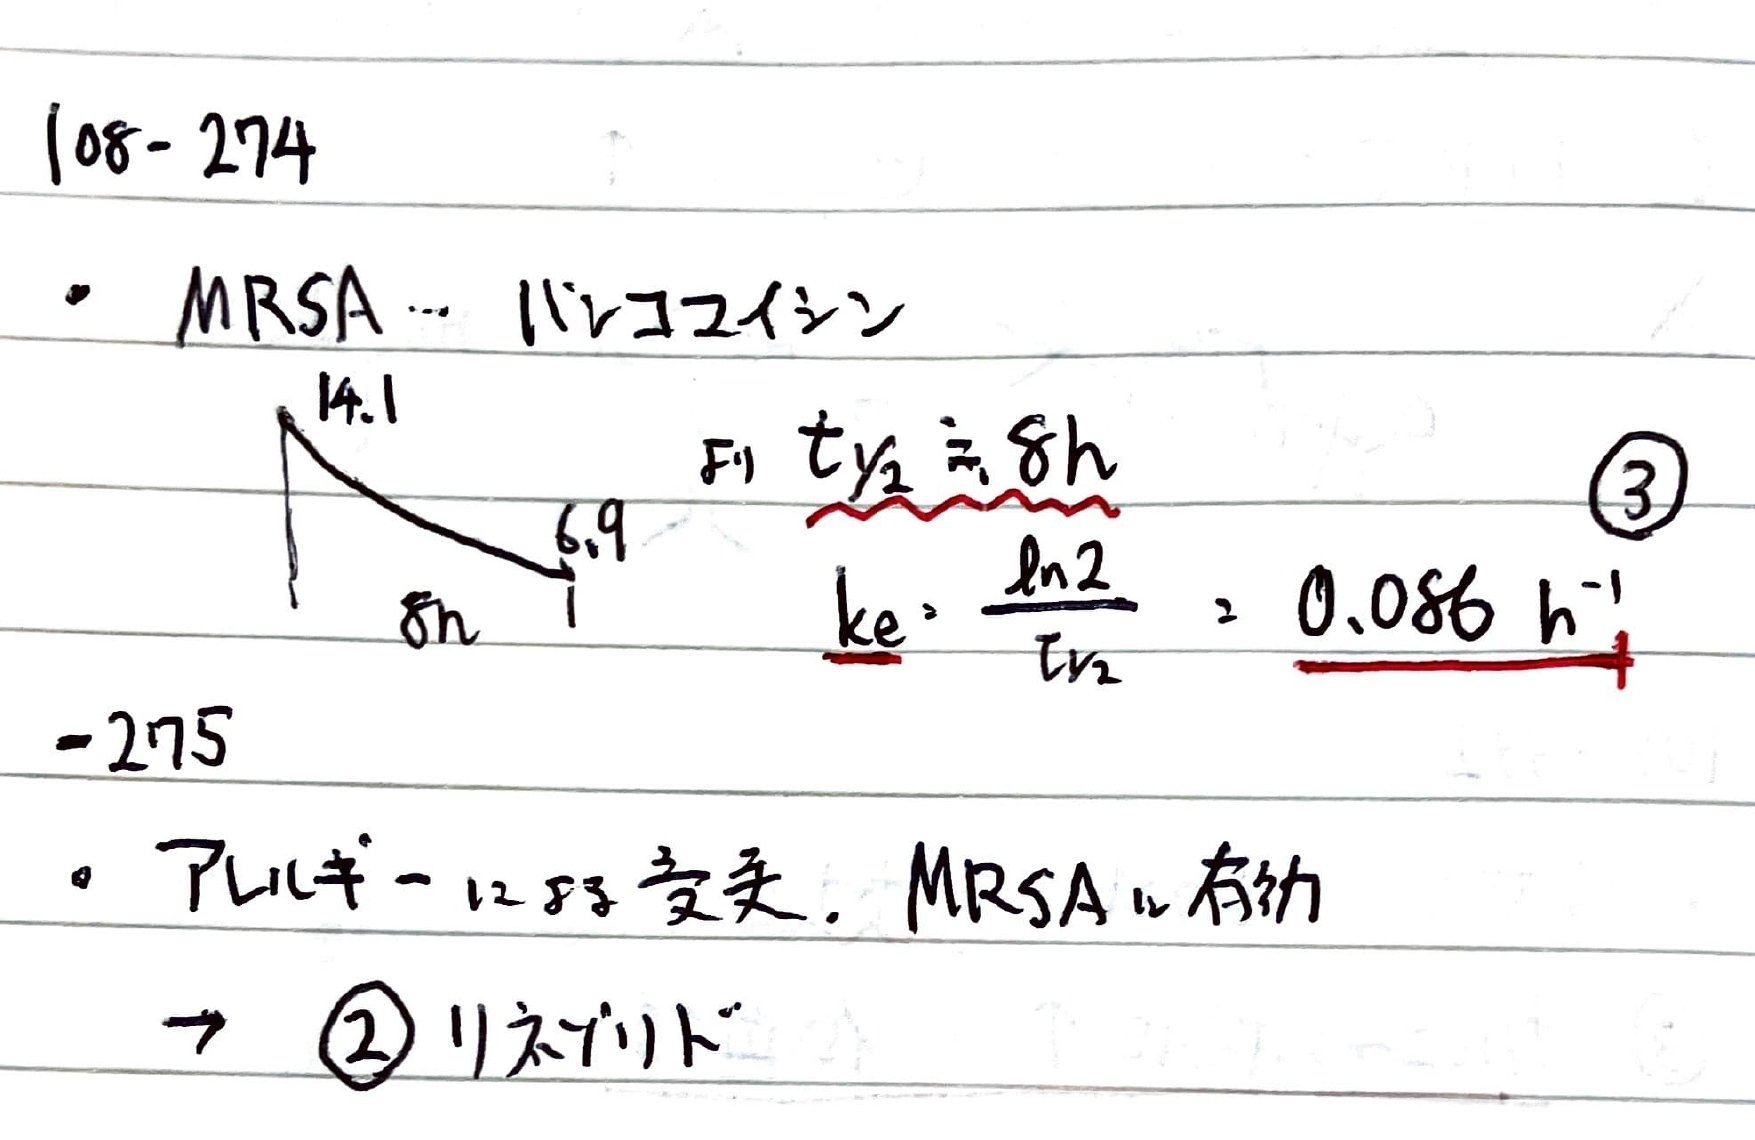 108-274
・ MRSA … バンココイシン
14.1
より t1/2 ≒ 8h
③
6.9
8h
ke = ln2 / t1/2 = 0.086 h⁻¹
-275
・ アレルギーによる変更. MRSAに有効
→ ② リネゾリド